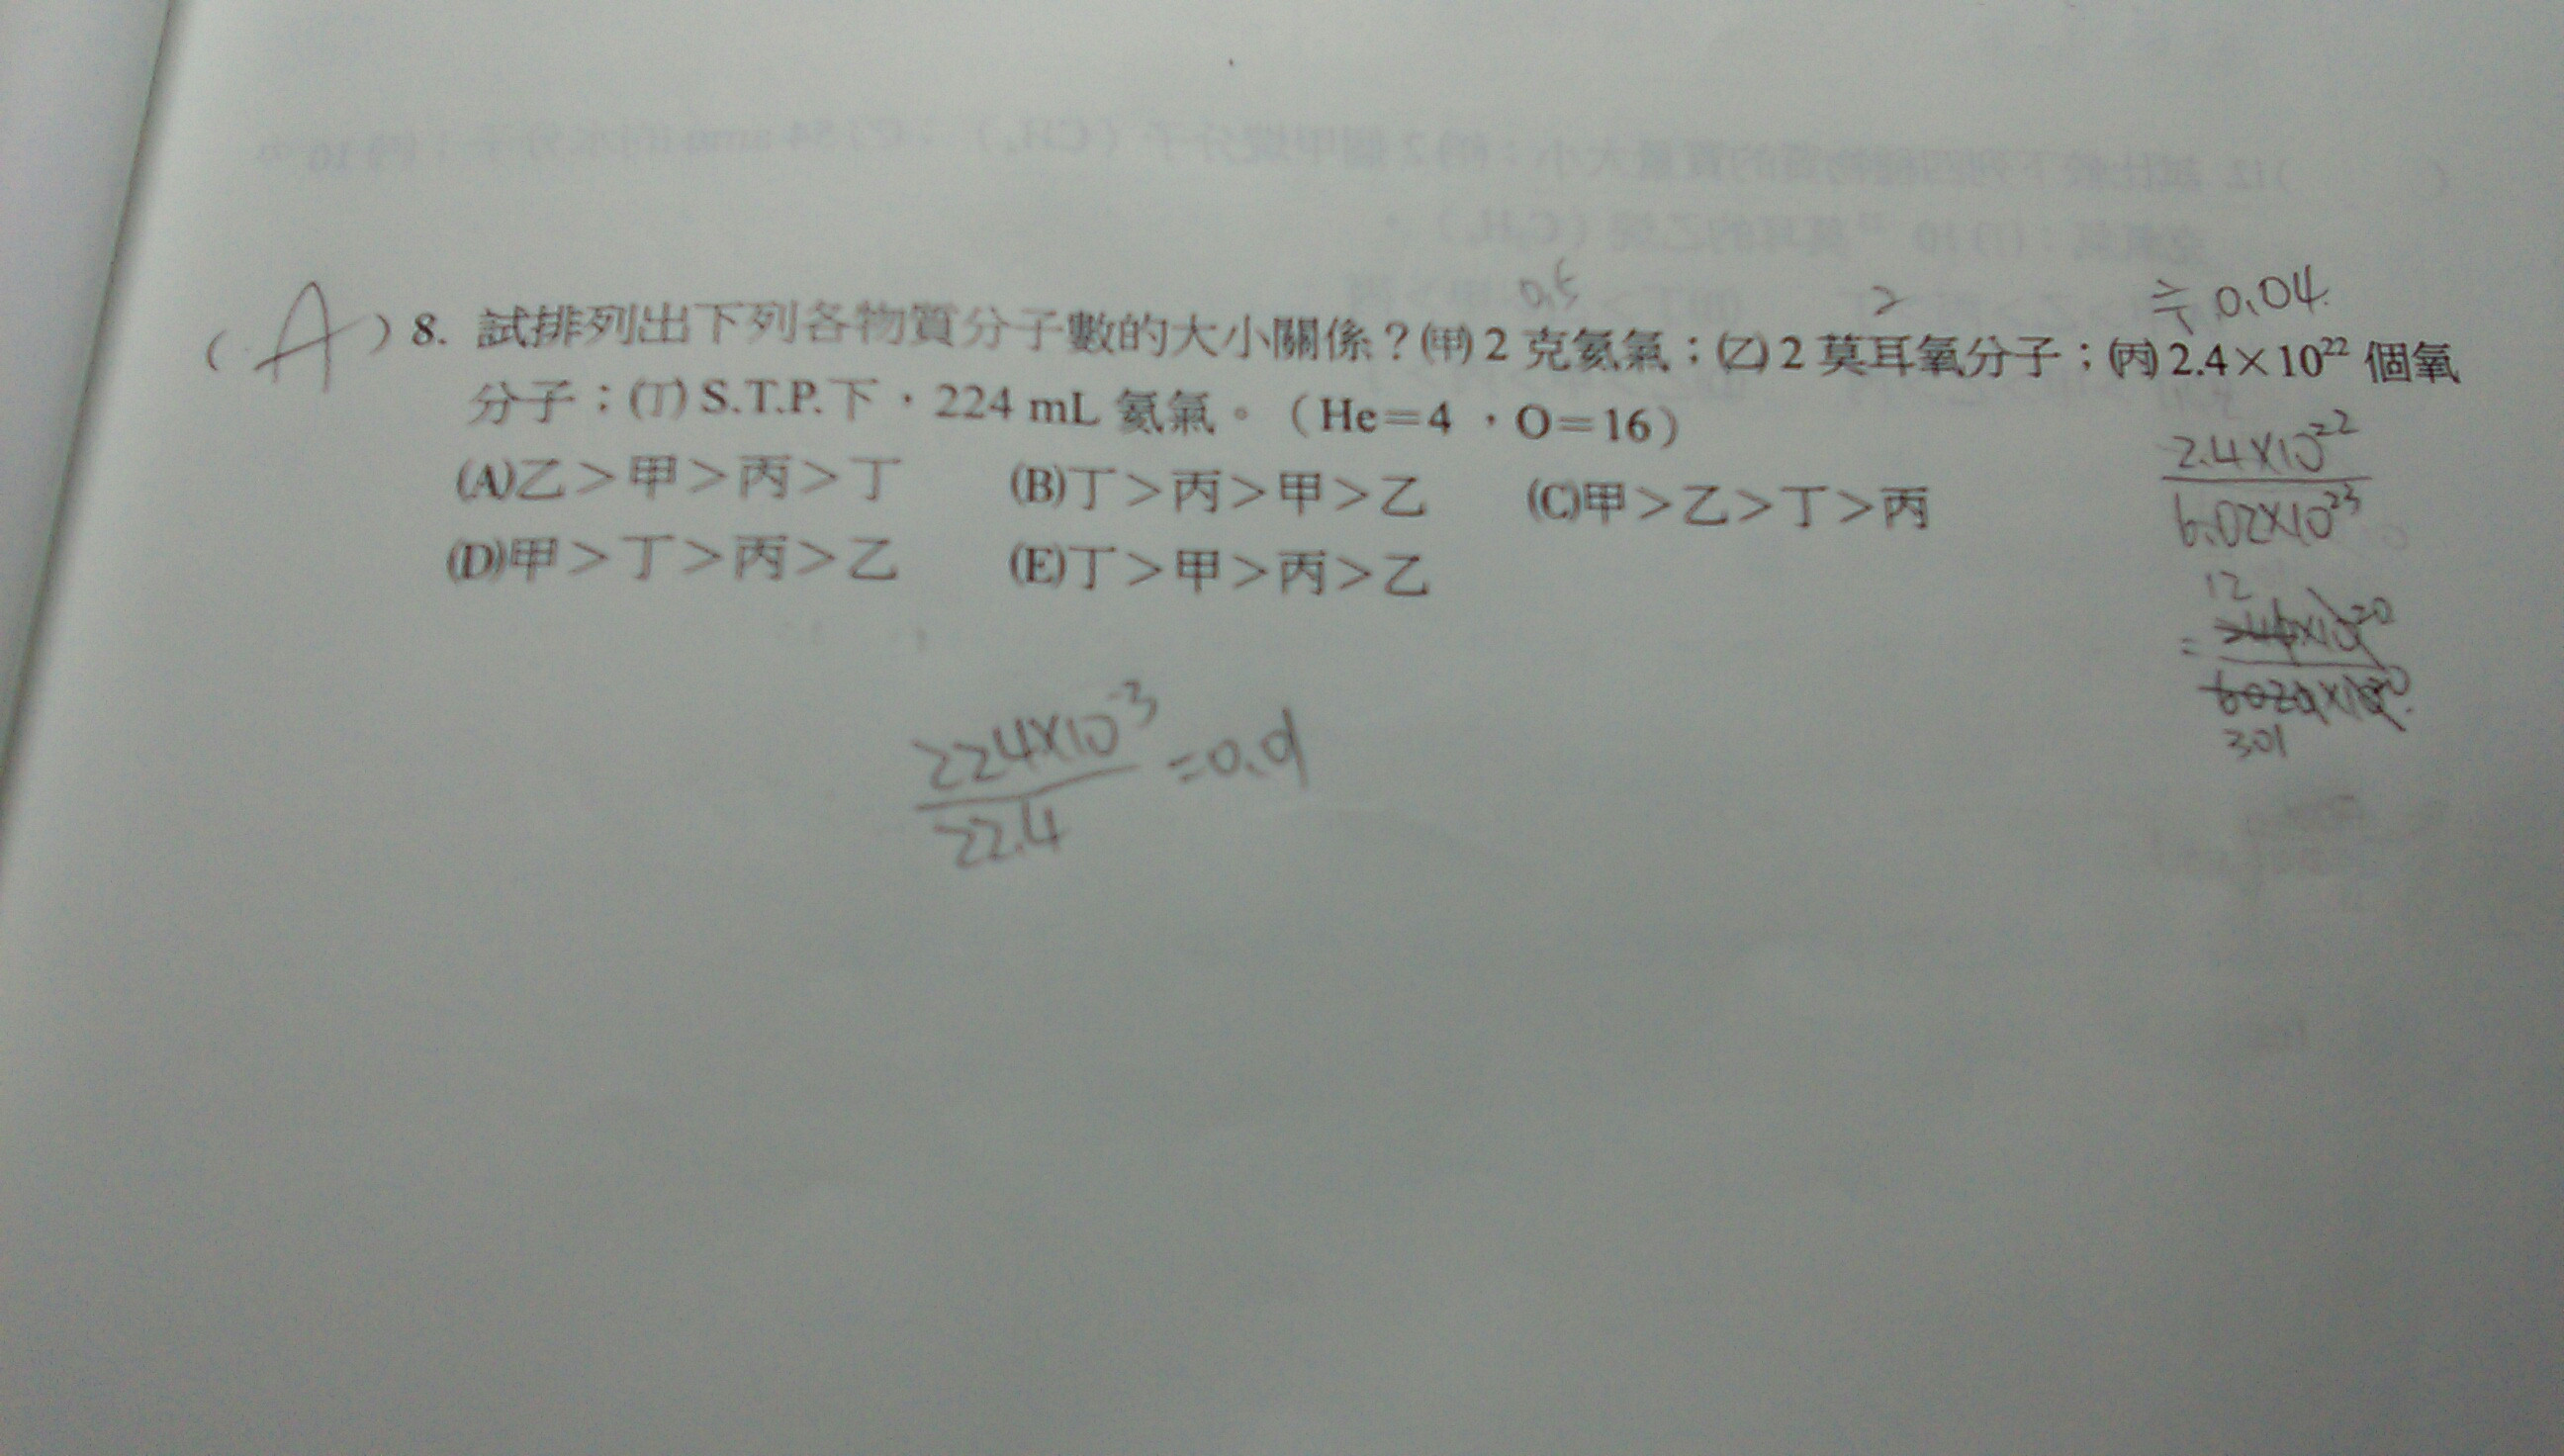 (A) 8. 試排列出下列各物質分子數的大小關係?(甲) 2 克氦氣;(乙) 2 莫耳氧分子;(丙) 2.4×10²² 個氧
0.5 2 ≒ 0.04
分子;(丁) S.T.P.下,224 mL 氦氣。(He=4,O=16)
(A)乙>甲>丙>丁 (B)丁>丙>甲>乙 (C)甲>乙>丁>丙
(D)甲>丁>丙>乙 (E)丁>甲>丙>乙
2.4×10²²
6.02×10²³
12
301
224×10⁻³
22.4
=0.01